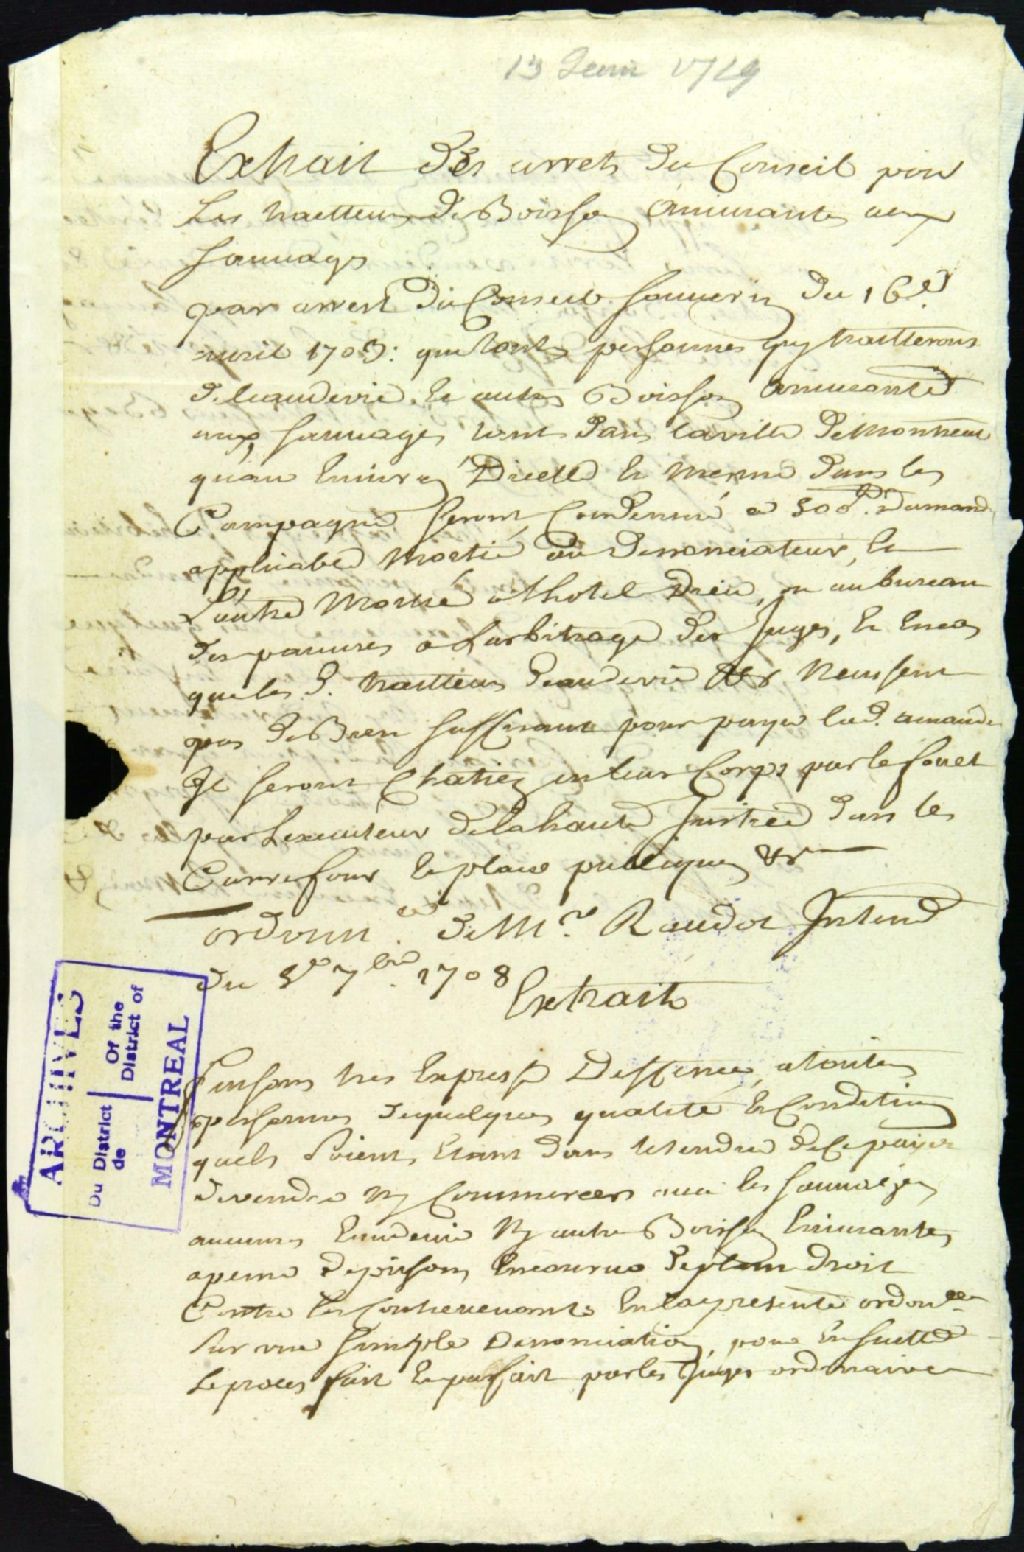 13 Juin 1719
Extrait des arrets du Conseil pour
Les traitteurs de Boisson Enivrantes aux
Sauvages
par arrest du Conseil Souverin du 16e
avril 1703: que toutes personnes qui traitterons
de leaudevie et autres Boisson Enivrante
aux Sauvages tant dans la ville de Montreal
quau Environ Dicelle et mesme dans les
Campagne seront Condemné a 500# damande
applicable Moitié au denonciateur, et
Lautre Moitié a lhotel Dieu, ou au bureau
des pauvres a larbitrage des Juges, et en cas
que les d. traitteurs deaudevie &c Neussent
pas de Bien suffisant pour payer lad. amande
Il seront Chatiez en leur Corps par le fouet
par Lexecuteur de la haute Justice dans les
Carrefour et place publiques &c
ordonnce de Mr. Raudot Intend
du 3e 7bre 1708
Extrait
faisons tres Expresse Deffence, a toutes
personnes de quelques qualité et Condition
quels soient, Etant dans letendue de ce païs
de vendre ny Commercer avec les Sauvages
aucunes Eaudevie Ny autre Boisson Enivrantes
a peine de prison Encourue de plain droit
Contre les Contrevenants En la presente ordonce
sur une simple Denonciation, pour Ensuitte
Le proces fait et parfait par les Juges ordinaires
ARCHIVES
Du District de
Of the District of
MONTREAL